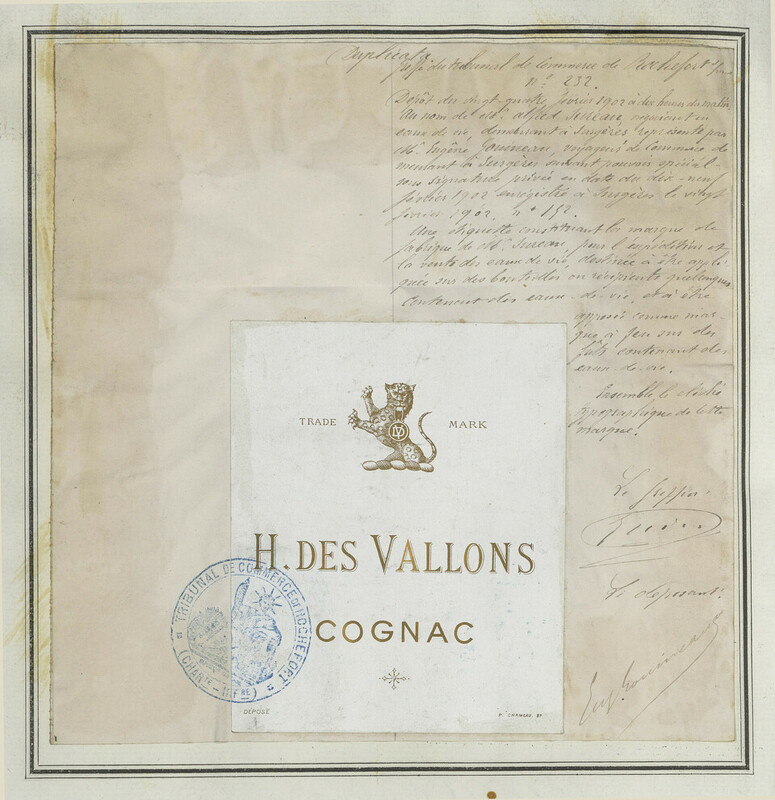 Duplicata
Greffe du tribunal de Commerce de Rochefort s/mer
n° 232.
Dépôt du vingt-quatre février 1902 à dix heures du matin
Au nom de Mr. Alfred Sureau, négociant en
eaux de vie, demeurant à Surgères représenté par
Mr. Eugène Gouineau, voyageur de Commerce de
meurant à Surgères suivant pouvoir spécial
sous signature privée en date du dix-neuf
février 1902 enregistré à Surgères le vingt
février 1902. n° 152.
Une étiquette constituant la marque de
fabrique de Mr. Sureau, pour l'expédition et
la vente des eaux de vie, destinée à être appli
quée sur des bouteilles ou récipients quelconques
contenant des eaux-de-vie, et à être
apposée comme mar-
que à feu sur des
fûts contenant des
eaux-de-vie.
Ensemble le cliché
typographique de cette
marque.
Le greffier
Le déposant.
Eug. Gouineau
TRADE MARK
H. DES VALLONS
COGNAC
TRIBUNAL DE COMMERCE DE ROCHEFORT
(CHARTE-INFRE)
DÉPOSÉ